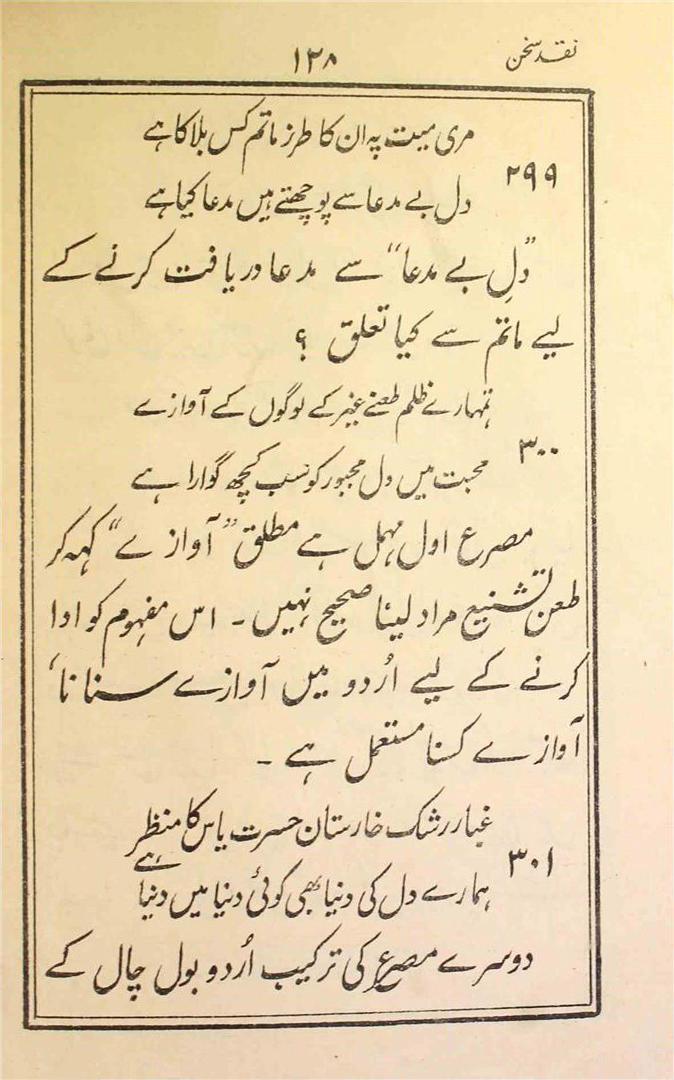 نقد سخن
۱۳۸
مری میت پہ ان کا طرز ماتم کس بلا کا ہے
۲۹۹
دل بے مدعا سے پوچھتے ہیں مدعا کیا ہے
”دلِ بے مدعا“ سے مدعا دریافت کرنے کے
لیے ماتم سے کیا تعلق ؟
تمہارے ظلم طعنے غیر کے لوگوں کے آوازے
۳۰۰
محبت میں دل مجبور کو سب کچھ گوارا ہے
مصرع اول مہمل ہے مطلق ”آوازے“ کہہ کر
طعن تشنیع مراد لینا صحیح نہیں ۔ اس مفہوم کو ادا
کرنے کے لیے اُردو میں آوازے سنانا،
آوازے کسنا مستعمل ہے ۔
غبار رشک خارستان حسرت یاس کا منظر
۳۰۱
ہمارے دل کی دنیا بھی کوئی دنیا میں دنیا ہے
دوسرے مصرع کی ترکیب اُردو بول چال کے